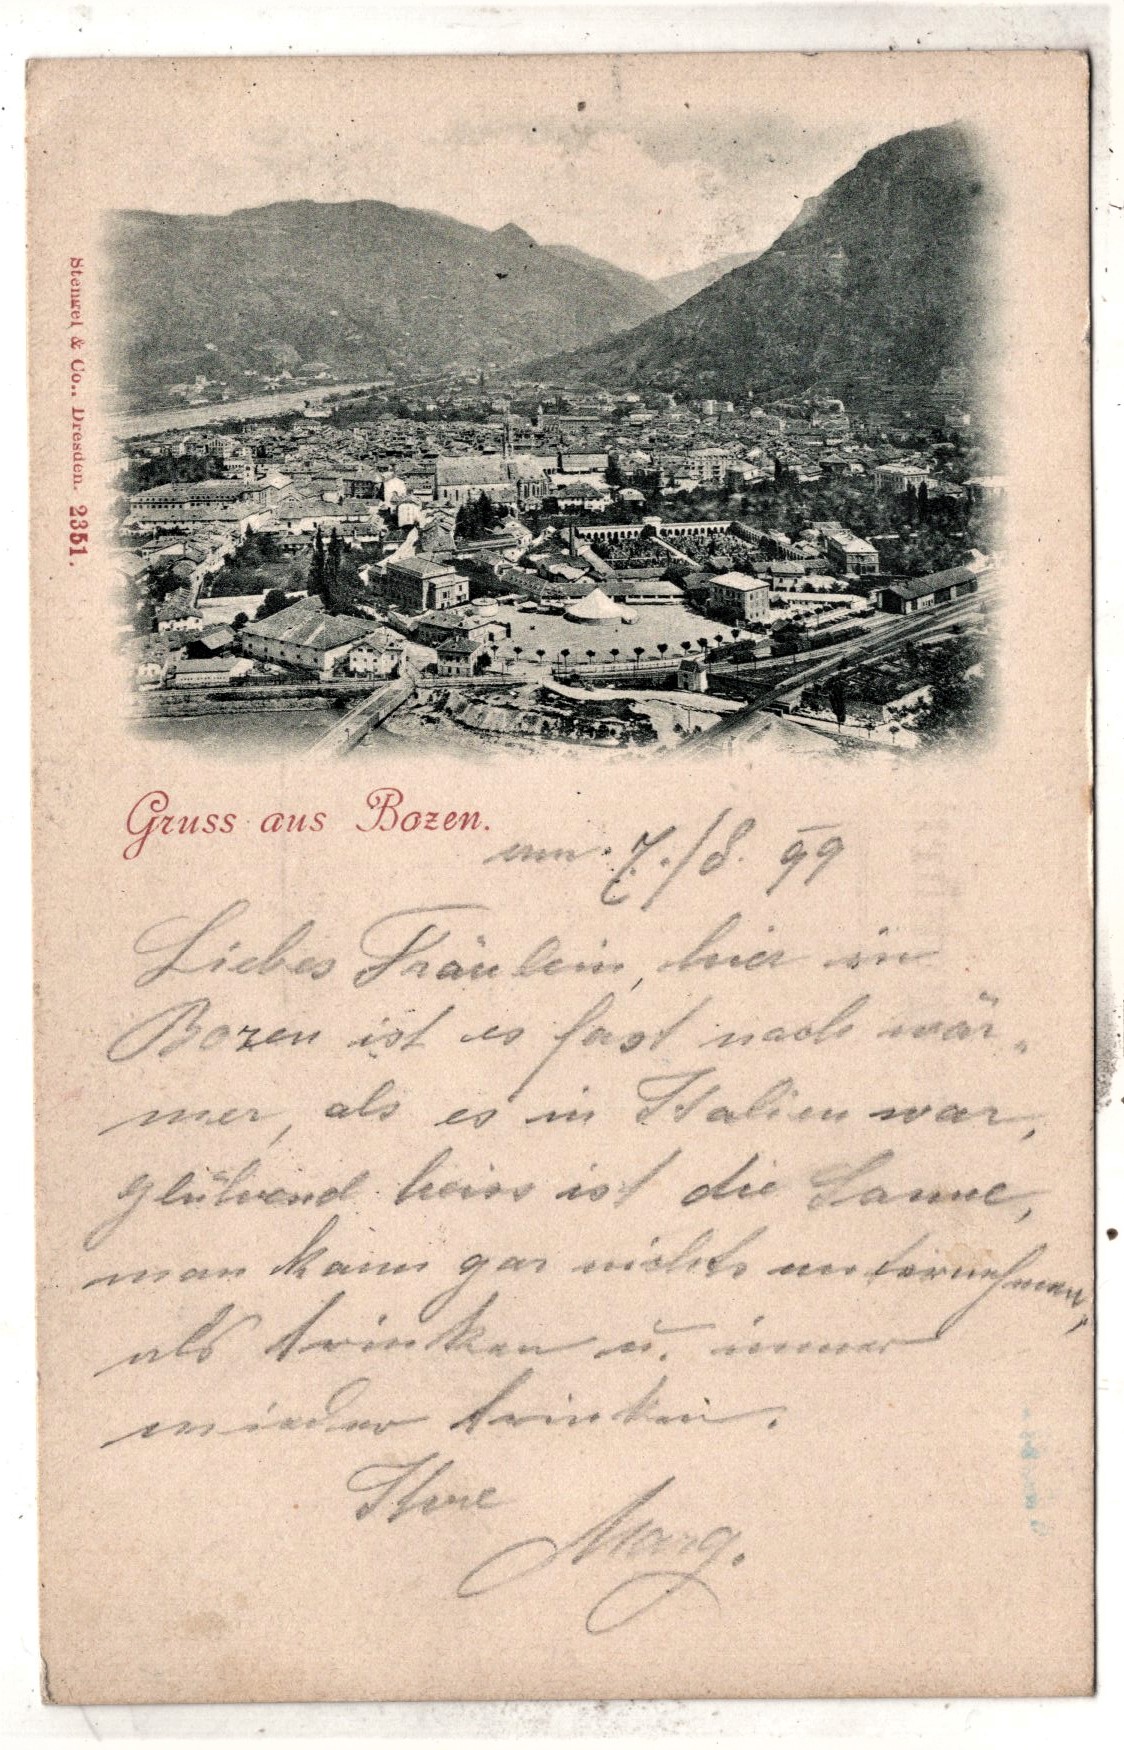 Stengel & Co., Dresden. 2351.
Gruss aus Bozen.
am 7./8. 99
Liebes Fräulein, hier in
Bozen ist es fast noch wär-
mer, als es in Italien war,
glühend heiss ist die Sonne,
man kann gar nichts unternehmen,
als trinken u. immer
wieder trinken.
Ihre
Marg.